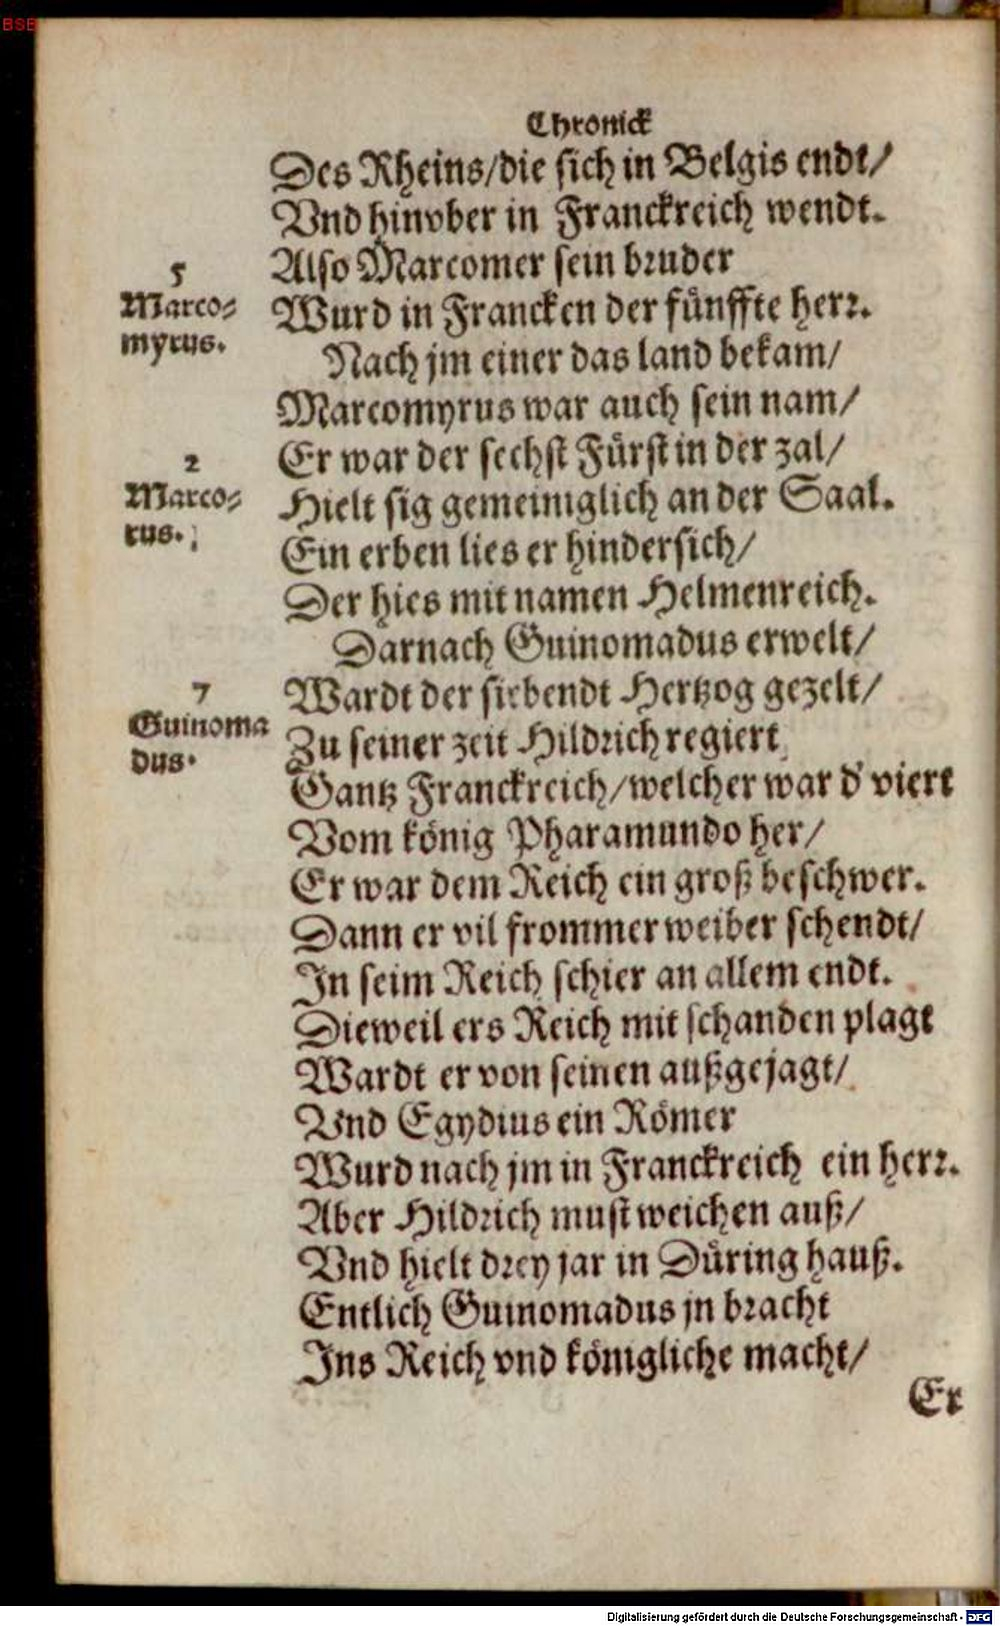 BSB
Chronick
Des Rheins/die sich in Belgis endt/
Vnd hinvber in Franckreich wendt.
Also Marcomer sein bruder
5
Marco=
myrus.
Wurd in Francken der fünffte herr.
Nach jm einer das land bekam/
Marcomyrus war auch sein nam/
Er war der sechst Fürst in der zal/
2
Marco=
rus.
Hielt sig gemeiniglich an der Saal.
Ein erben lies er hindersich/
Der hies mit namen Helmenreich.
Darnach Guinomadus erwelt/
7
Guinoma
dus.
Wardt der siebendt Hertzog gezelt/
Zu seiner zeit Hildrich regiert
Gantz Franckreich/welcher war d' viert
Vom könig Pharamundo her/
Er war dem Reich ein groß beschwer.
Dann er vil frommer weiber schendt/
In seim Reich schier an allem endt.
Dieweil ers Reich mit schanden plagt
Wardt er von seinen außgejagt/
Vnd Egydius ein Römer
Wurd nach jm in Franckreich ein herr.
Aber Hildrich must weichen auß/
Vnd hielt drey jar in Düring hauß.
Entlich Guinomadus jn bracht
Ins Reich vnd königliche macht/
Er
Digitalisierung gefördert durch die Deutsche Forschungsgemeinschaft - DFG